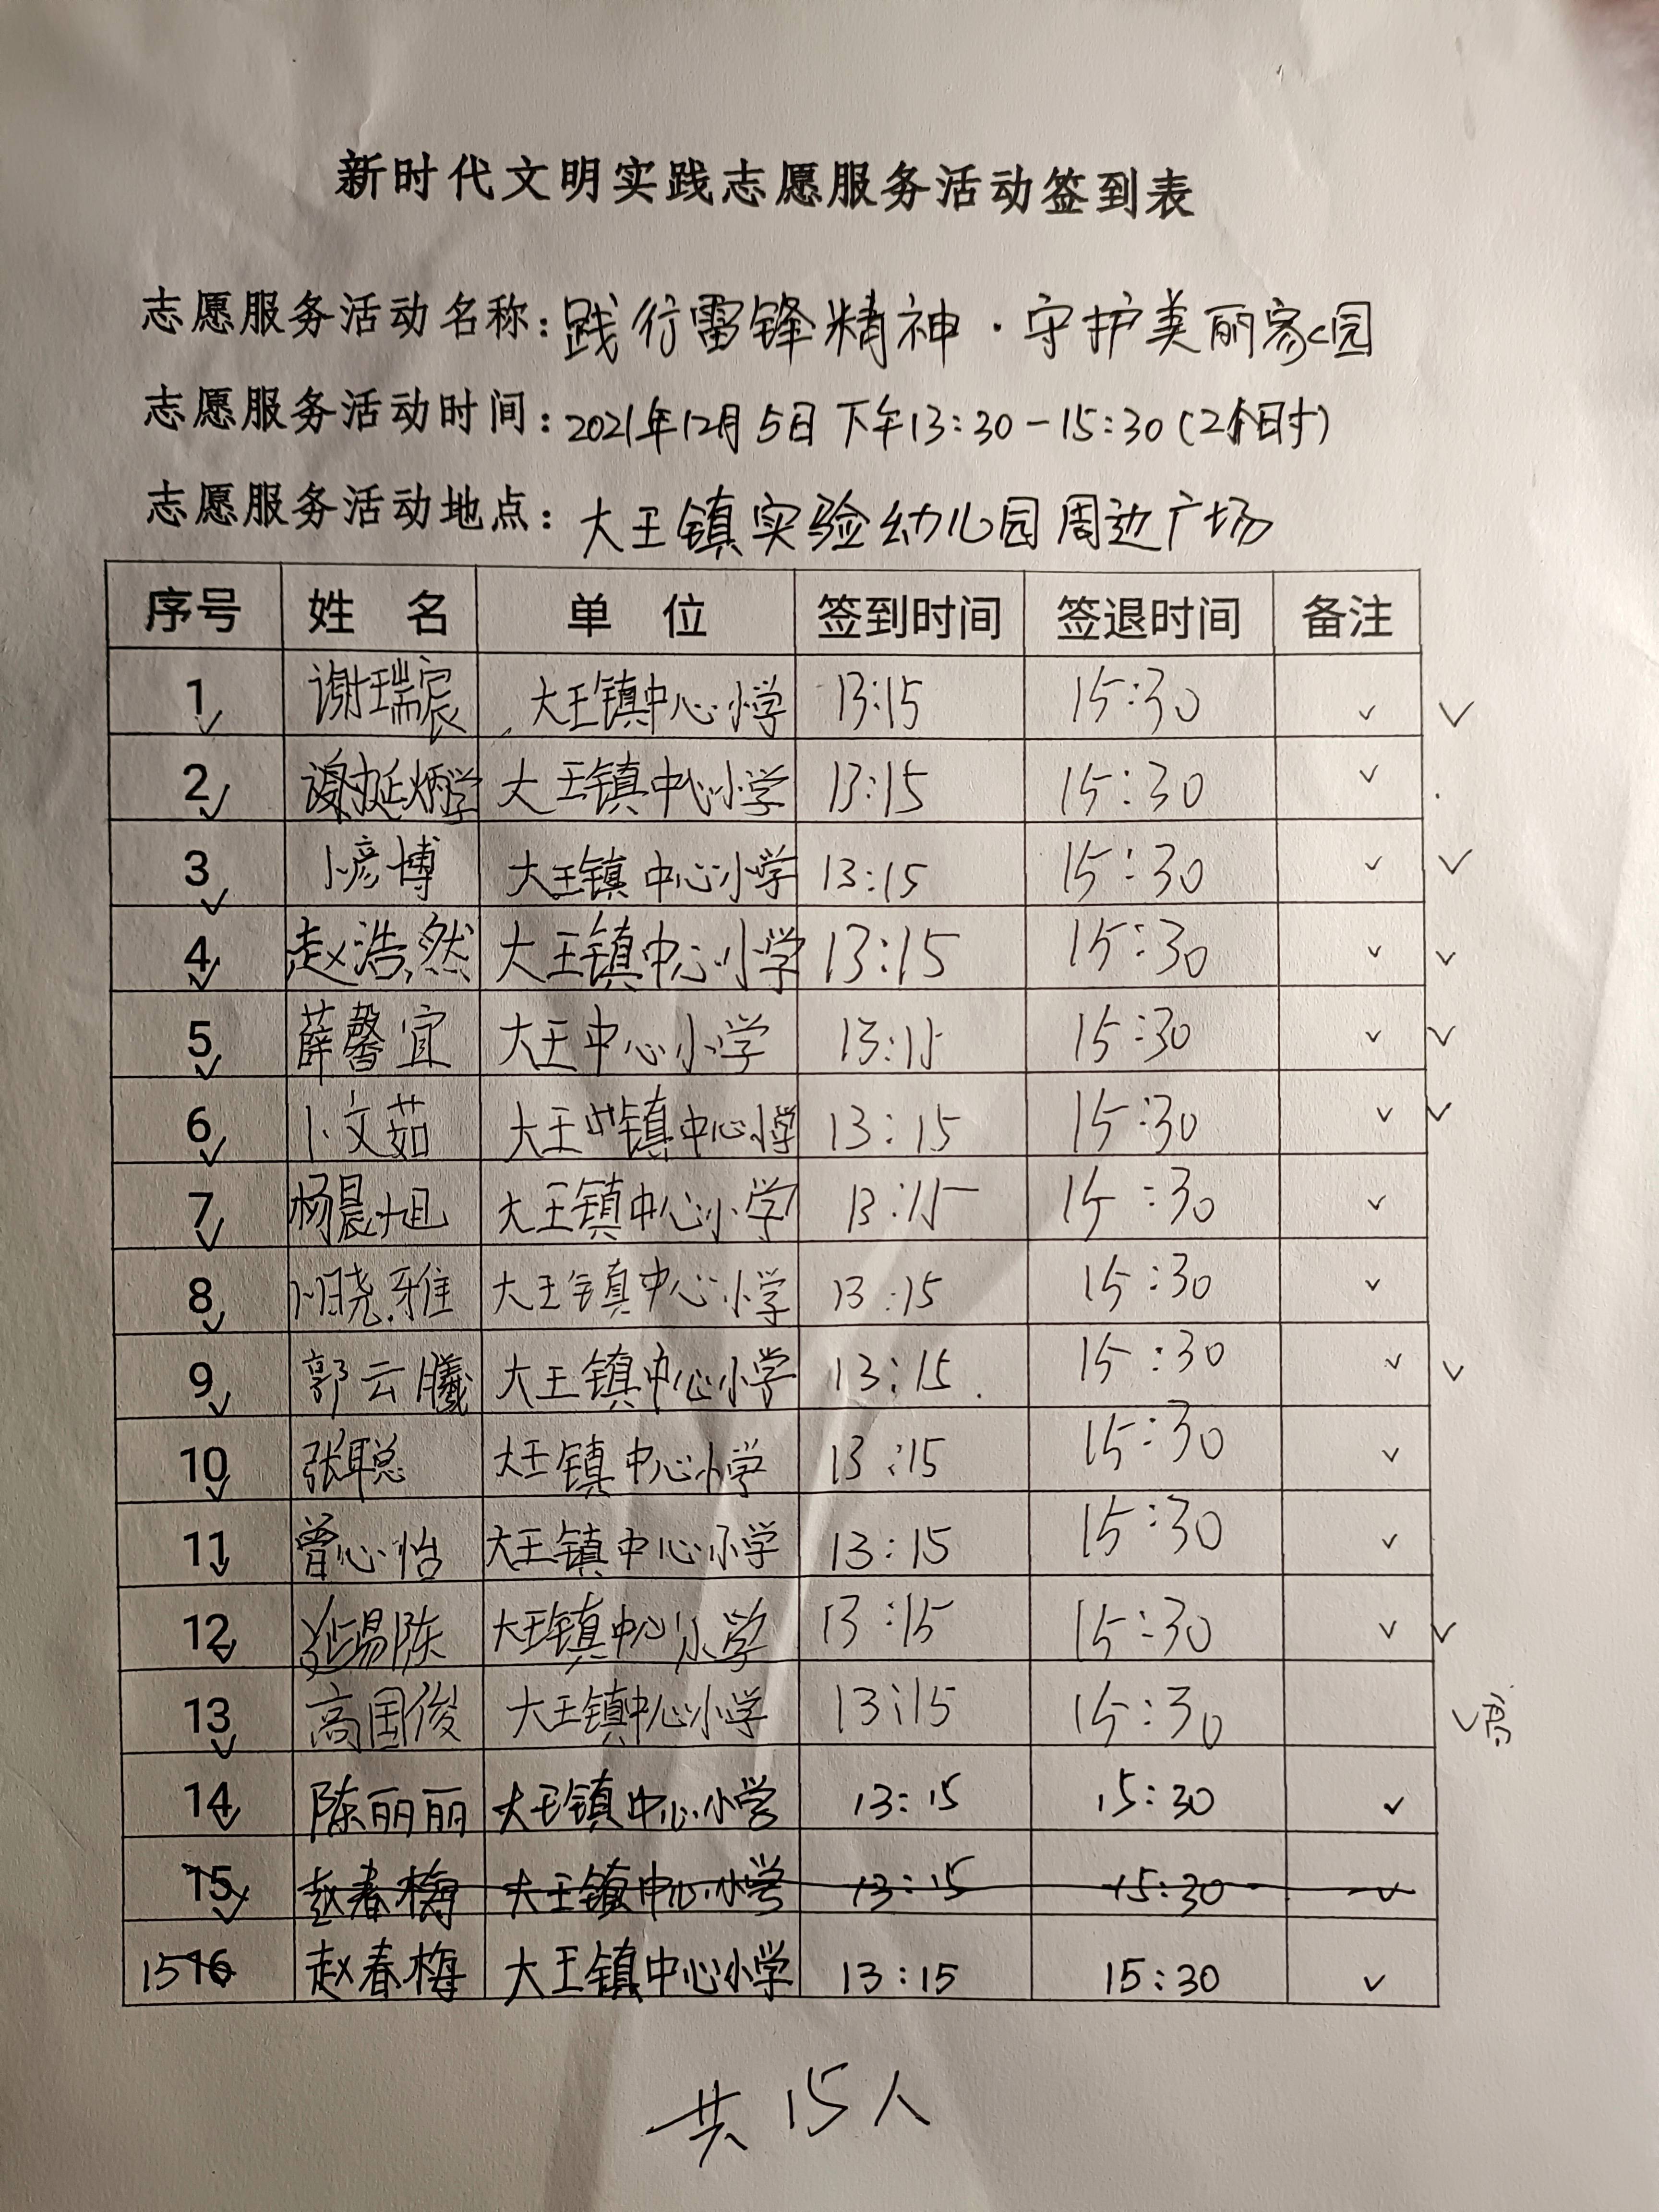 新时代文明实践志愿服务活动签到表
志愿服务活动名称：践行雷锋精神·守护美丽家园
志愿服务活动时间：2021年12月5日下午13:30-15:30(2个小时)
志愿服务活动地点：大王镇实验幼儿园周边广场
序号 姓名 单位 签到时间 签退时间 备注
1 谢瑞宸 大王镇中心小学 13:15 15:30 ✓ ✓
2 大王镇中心小学 13:15 15:30 ✓
3 卜彦博 大王镇中心小学 13:15 15:30 ✓ ✓
4 赵浩然 大王镇中心小学 13:15 15:30 ✓ ✓
5 薛馨宜 大王中心小学 13:15 15:30 ✓ ✓
6 卜文茹 大王镇中心小学 13:15 15:30 ✓ ✓
7 杨晨旭 大王镇中心小学 13:15 15:30 ✓
8 晓雅 大王镇中心小学 13:15 15:30 ✓
9 郭云曦 大王镇中心小学 13:15 15:30 ✓ ✓
10 张聪 大王镇中心小学 13:15 15:30 ✓
11 曾心怡 大王镇中心小学 13:15 15:30 ✓
12 延易陈 大王镇中心小学 13:15 15:30 ✓ ✓
13 高国俊 大王镇中心小学 13:15 15:30 ✓高
14 陈丽丽 大王镇中心小学 13:15 15:30 ✓
15 赵春梅 大王镇中心小学 13:15 15:30 ✓
15 16 赵春梅 大王镇中心小学 13:15 15:30 ✓
共15人